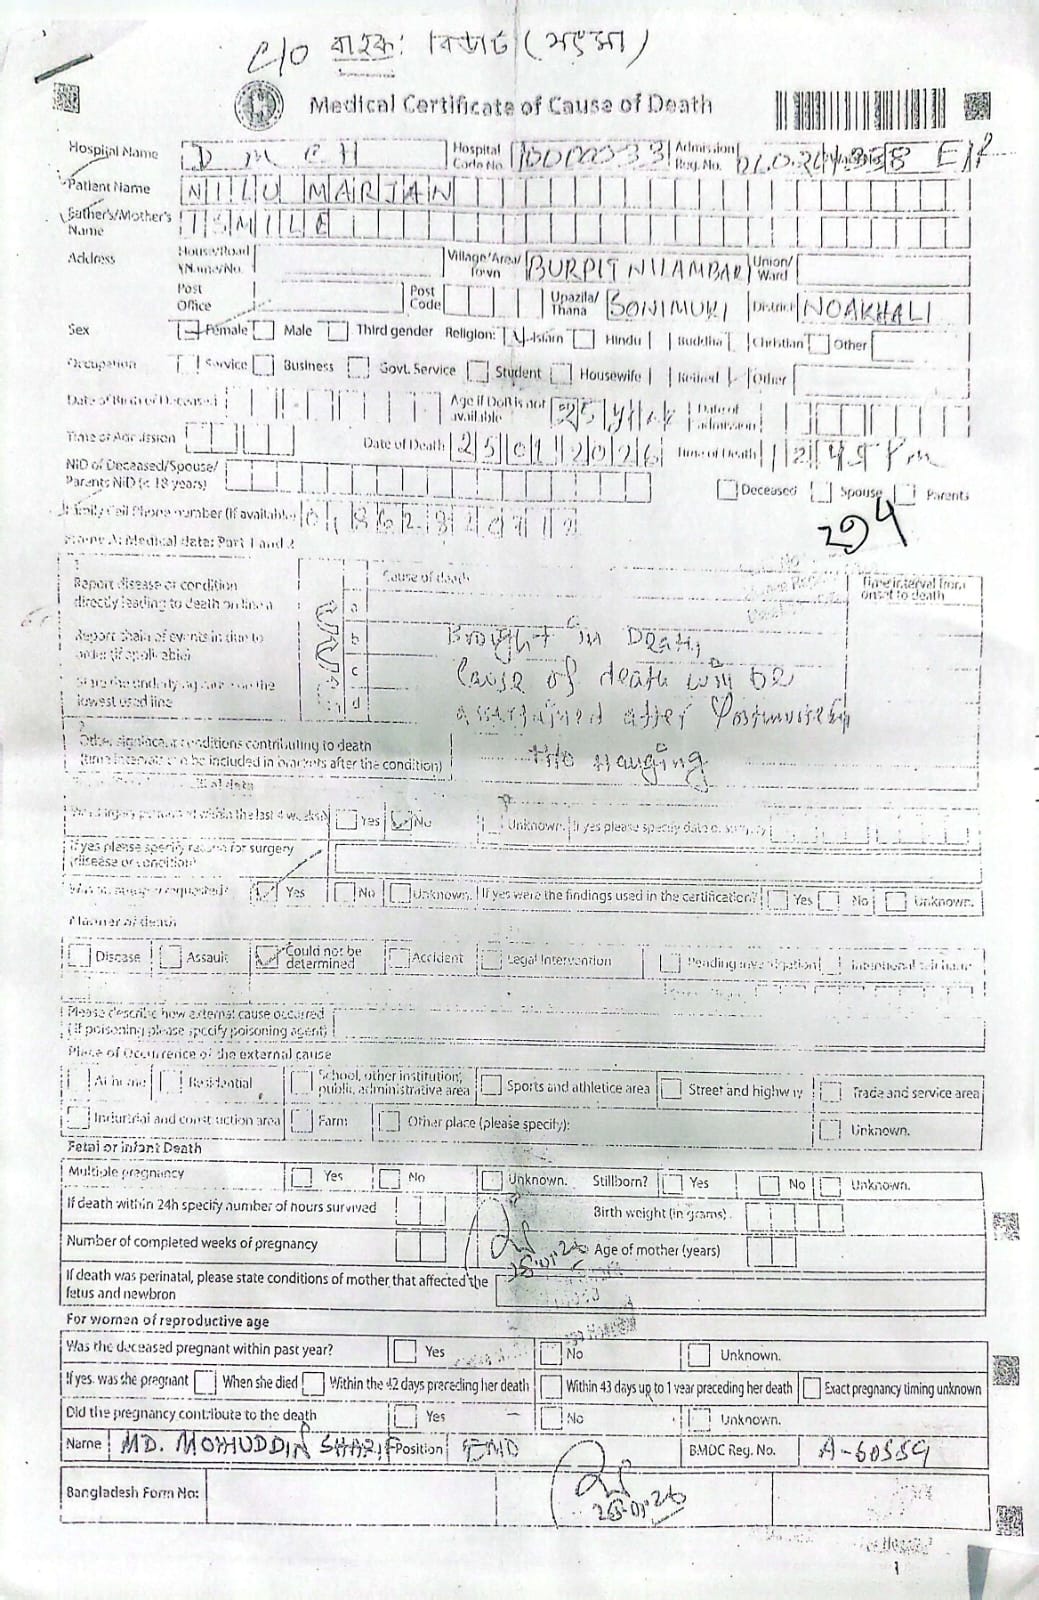 C/O বাহক:
Medical Certificate of Cause of Death
Hospital Name D M C H Hospital Code No. 10000033 Admission Reg. No.
Patient Name NILU MARJAN
Father's/Mother's Name ISMILE
Address House/Road Name/No. Village/Area/Town BURPIT NILAMBAR Union/Ward
Post Office Post Code Upazila/Thana SONIMURI District NOAKHALI
Sex Female Male Third gender Religion: Islam Hindu Buddha Christian Other
Occupation Service Business Govt. Service Student Housewife Retired Other
Date of Birth of Deceased Age if DoB is not available 25 Date of admission
Time of Admission Date of Death 25 01 2026 Time of Death 12 45 Pm
NID of Deceased/Spouse/Parents NID (< 18 years) Deceased Spouse Parents
Family Cell Phone number (if available)
294
Frame A: Medical data: Part 1 and 2
1
Report disease or condition directly leading to death on line a
Report chain of events in due to order (if applicable)
State the underlying cause on the lowest used line
Cause of death
Time interval from onset to death
a
b Brought in Death,
c Cause of death will be
d assertained after Postmortem
2
Other significant conditions contributing to death (time intervals can be included in brackets after the condition)
H/O Hanging
Was surgery performed within the last 4 weeks? Yes No Unknown. If yes please specify date of surgery
If yes please specify reason for surgery (disease or condition)
Was an autopsy requested? Yes No Unknown. If yes were the findings used in the certification? Yes No Unknown.
Manner of death
Disease Assault Could not be determined Accident Legal Intervention Pending investigation Intentional self harm
Please describe how external cause occurred (If poisoning please specify poisoning agent)
Place of Occurrence of the external cause
At home Residential School, other institution, public, administrative area Sports and athletice area Street and highway Trade and service area
Industrial and construction area Farm Other place (please specify): Unknown.
Fetal or infant Death
Multiple pregnancy Yes No Unknown. Stillborn? Yes No Unknown.
If death within 24h specify number of hours survived Birth weight (in grams)
Number of completed weeks of pregnancy 25.01.26 Age of mother (years)
If death was perinatal, please state conditions of mother that affected the fetus and newbron
For women of reproductive age
Was the deceased pregnant within past year? Yes No Unknown.
If yes. was she pregnant When she died Within the 42 days preceding her death Within 43 days up to 1 year preceding her death Exact pregnancy timing unknown
Did the pregnancy contribute to the death Yes No Unknown.
Name MD. MOHIUDDIN SHARIF Position EMO BMDC Reg. No. A-60559
Bangladesh Form No: 25.01.26
1